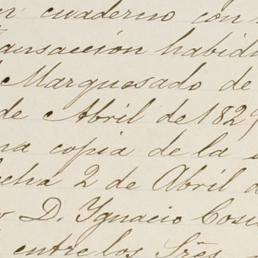 n cuaderno con
ansacción habid
Marquesado de
de Abril de 1829
na copia de la
echa 2 de Abril d
D. Ygnacio Cos
entre los Sres